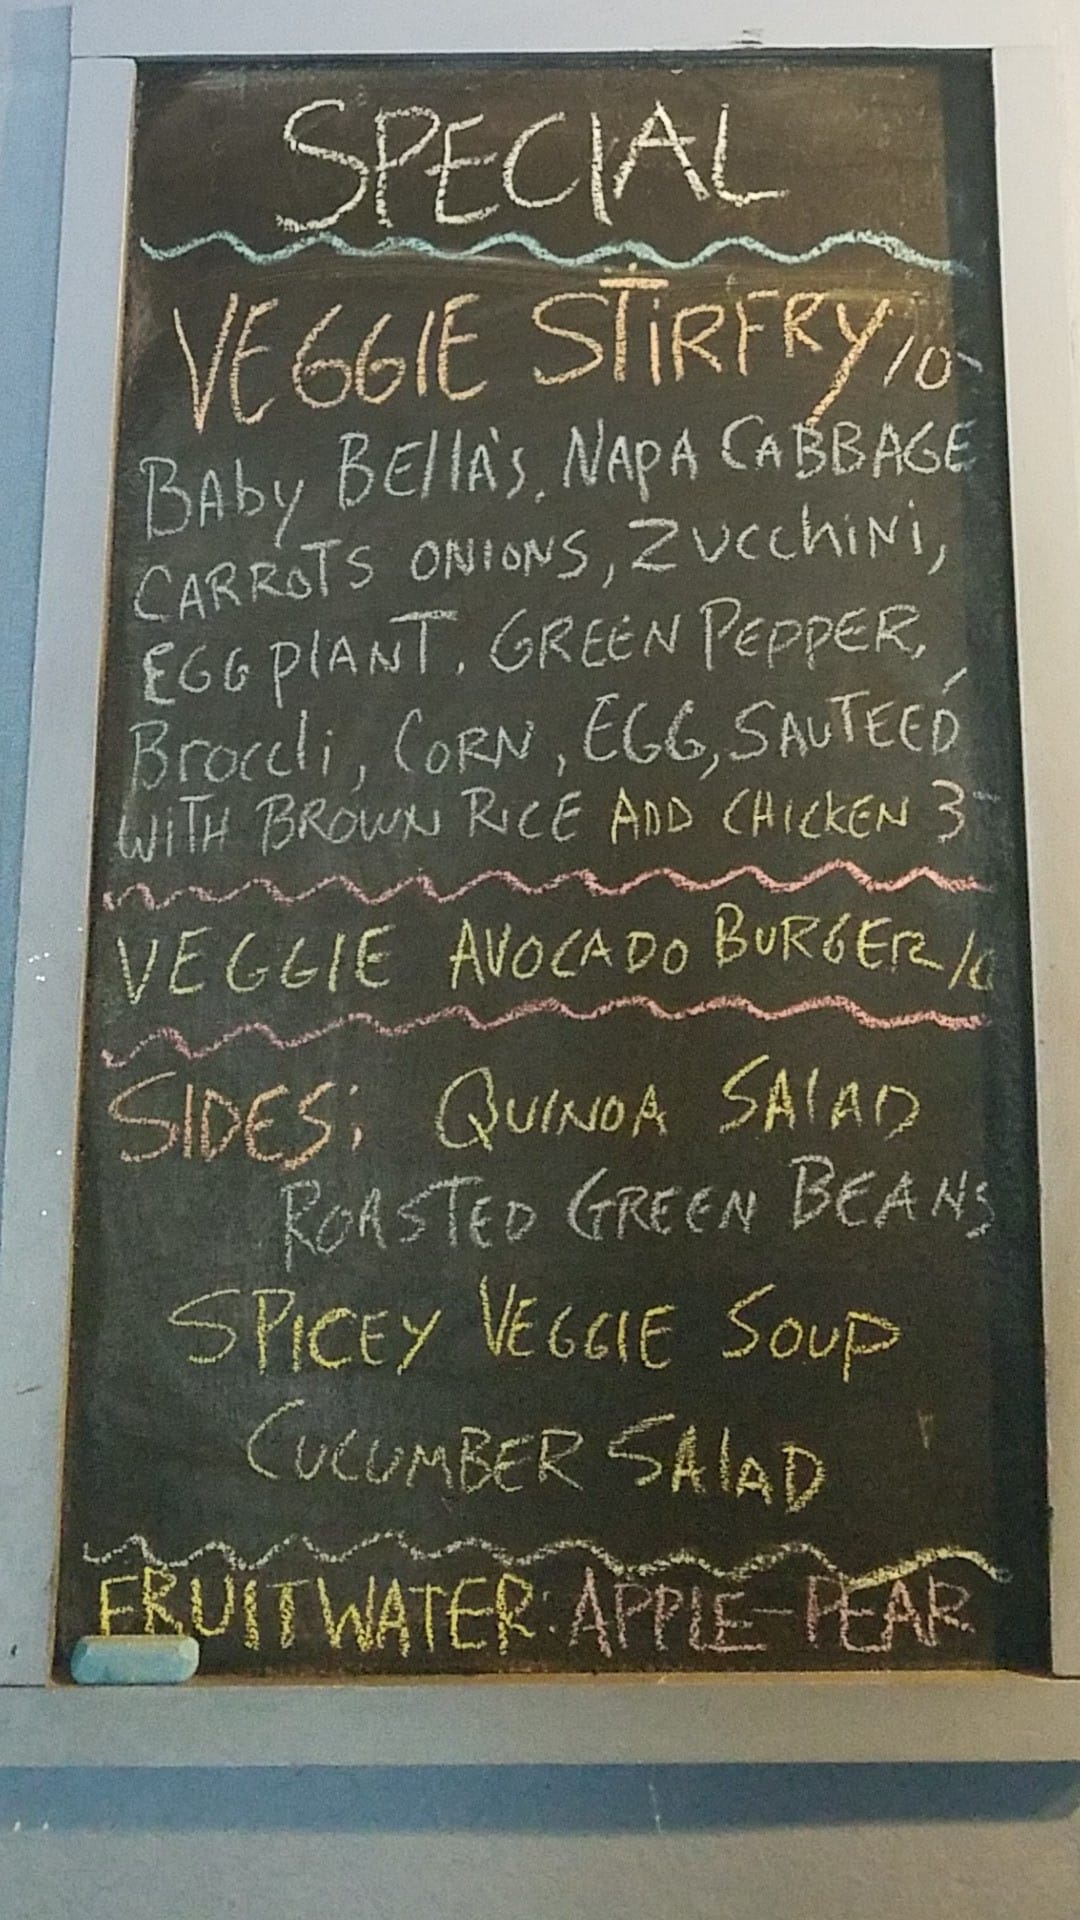 SPECIAL
VEGGIE STIRFRY 10-
BABy BEllA's, NAPA CABBAGE
CARROTS ONIONS, ZUCChiNi,
EGGplANT, GREEN PEPPER,
Broccli, CORN, EGG, SAUTEED
WITH BROWN RICE ADD CHICKEN 3-
VEGGIE AVOCADO BURGER
SIDES: QUINOA SAlAD
ROASTED GREEN BEANS
SPICEY VEGGIE SOUP
CUCUMBER SAlAD
FRUITWATER: APPLE-PEAR